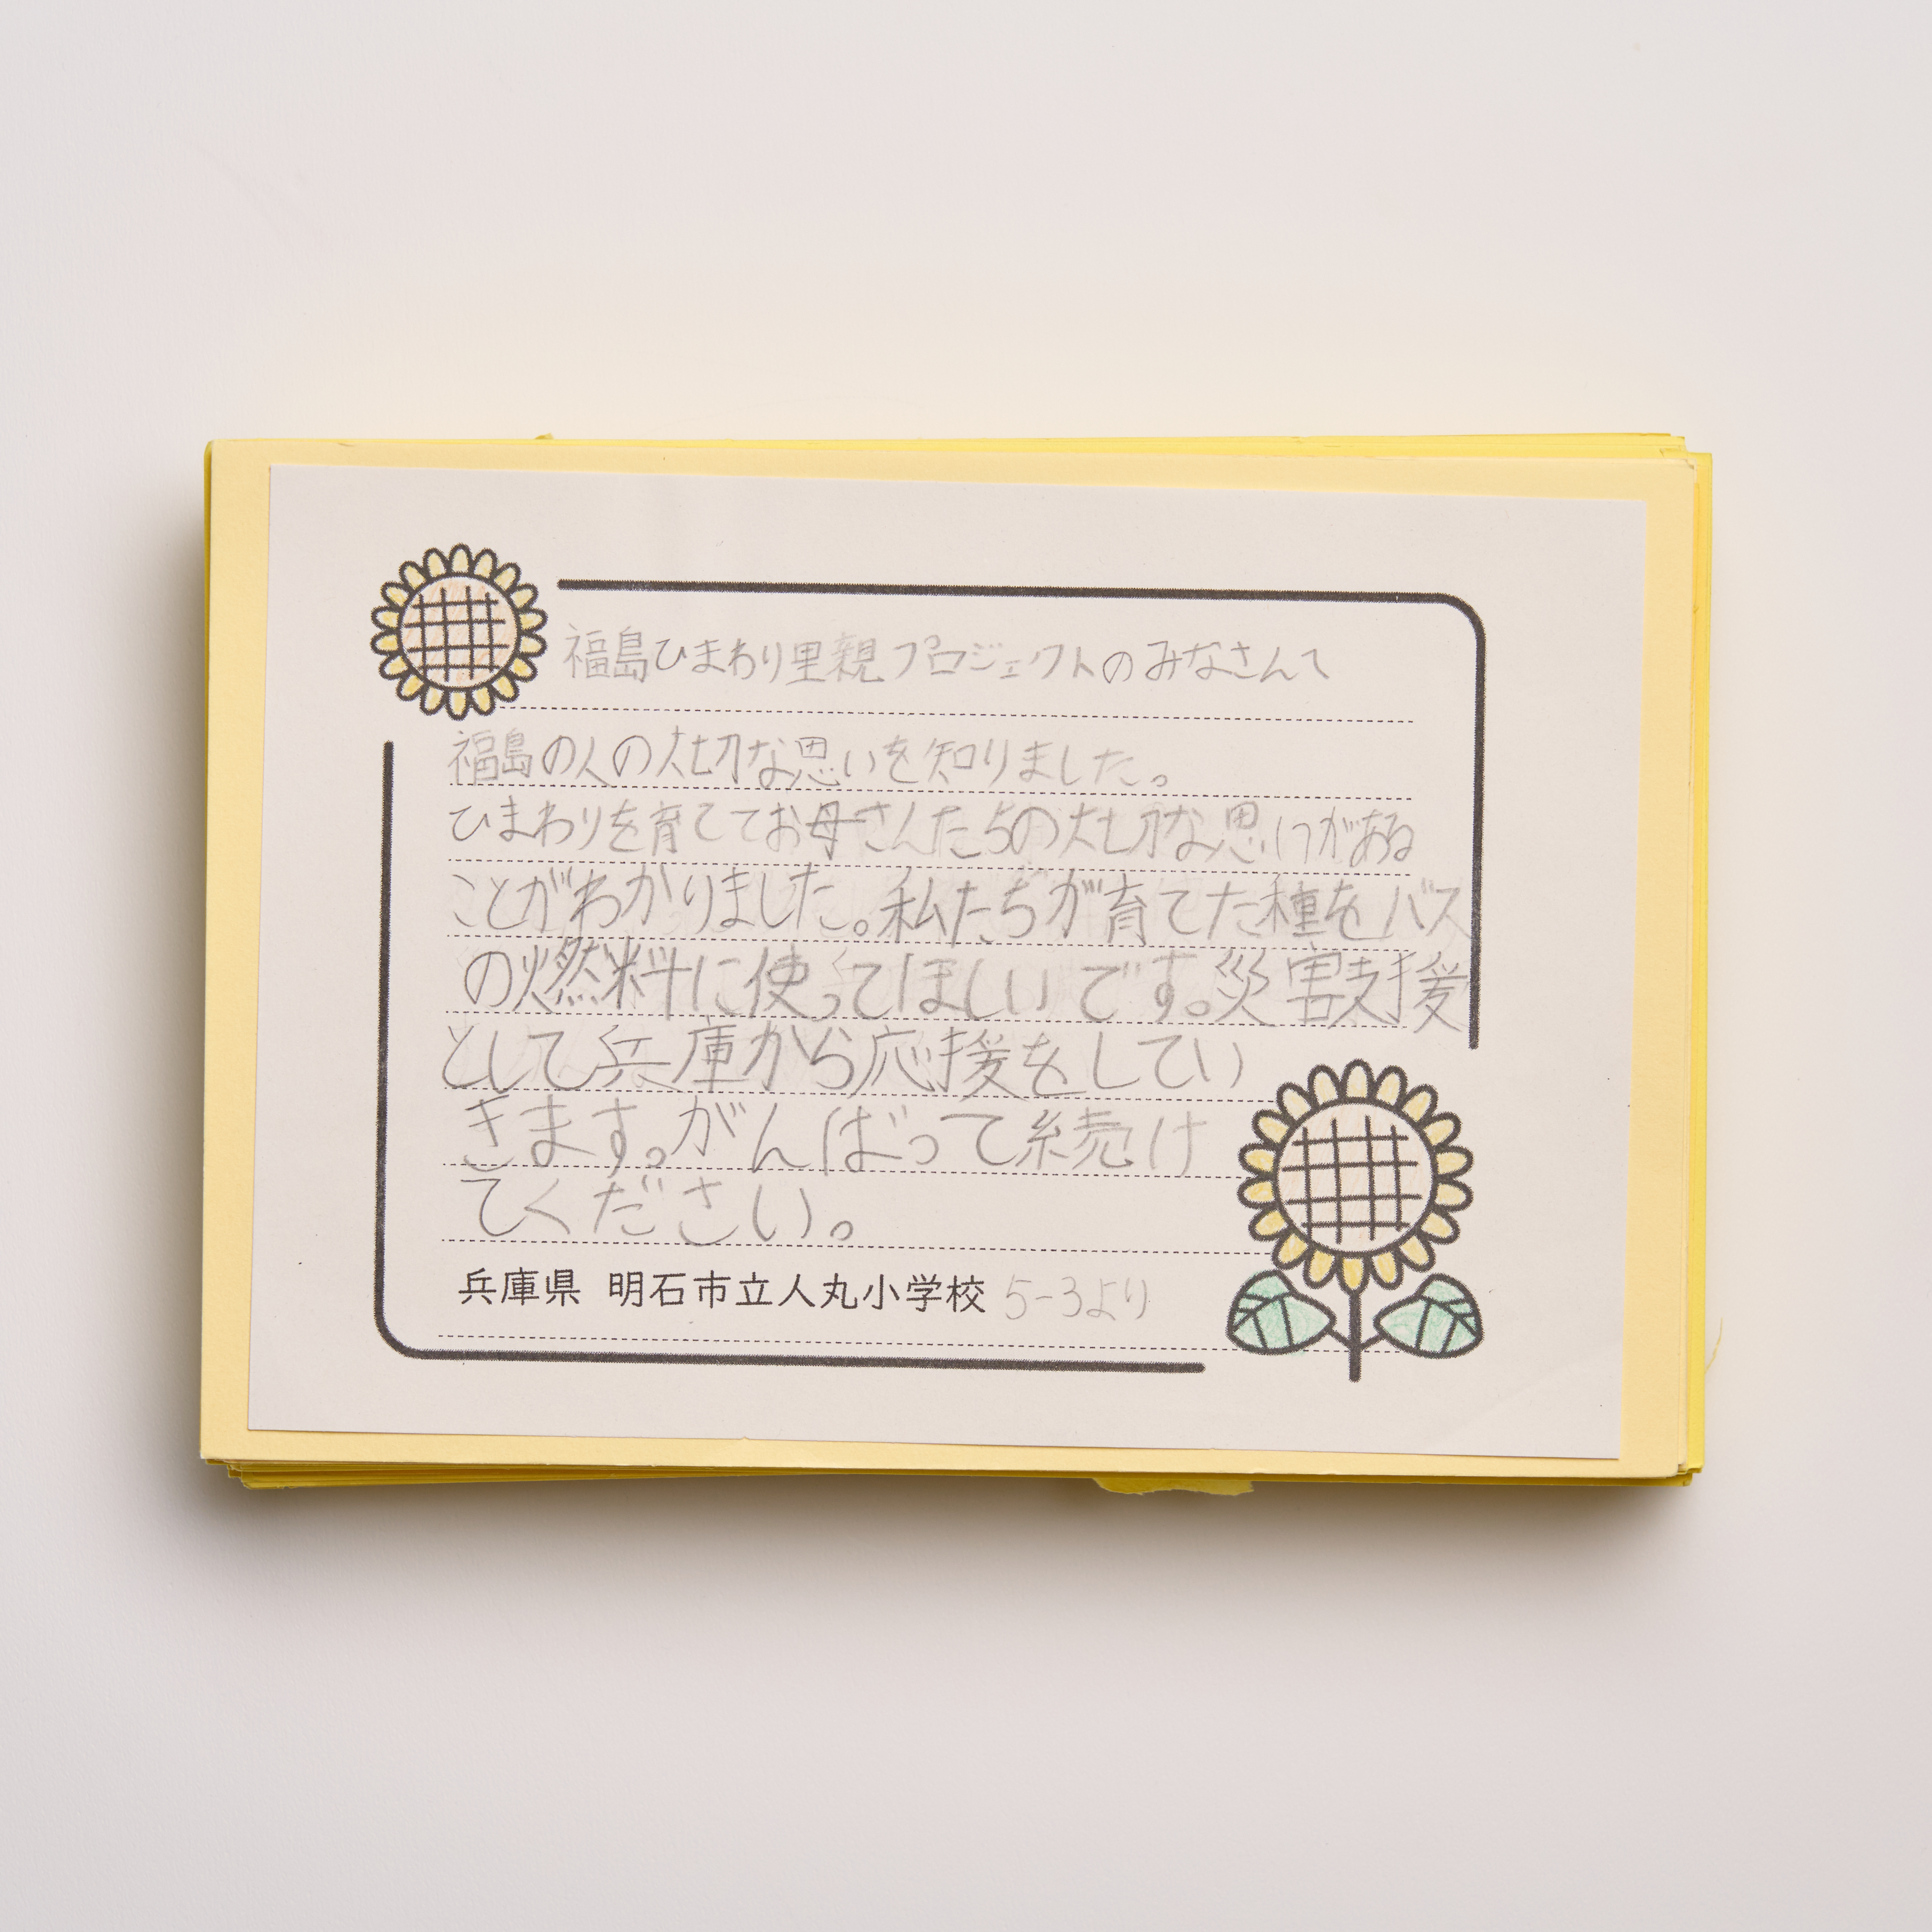 福島ひまわり里親プロジェクトのみなさんへ
福島の人の大切な思いを知りました。
ひまわりを育ててお母さんたちの大切な思いがある
ことがわかりました。私たちが育てた種をバス
の燃料に使ってほしいです。災害支援
として兵庫から応援をしてい
きます。がんばって続け
てください。
兵庫県 明石市立人丸小学校 5-3より